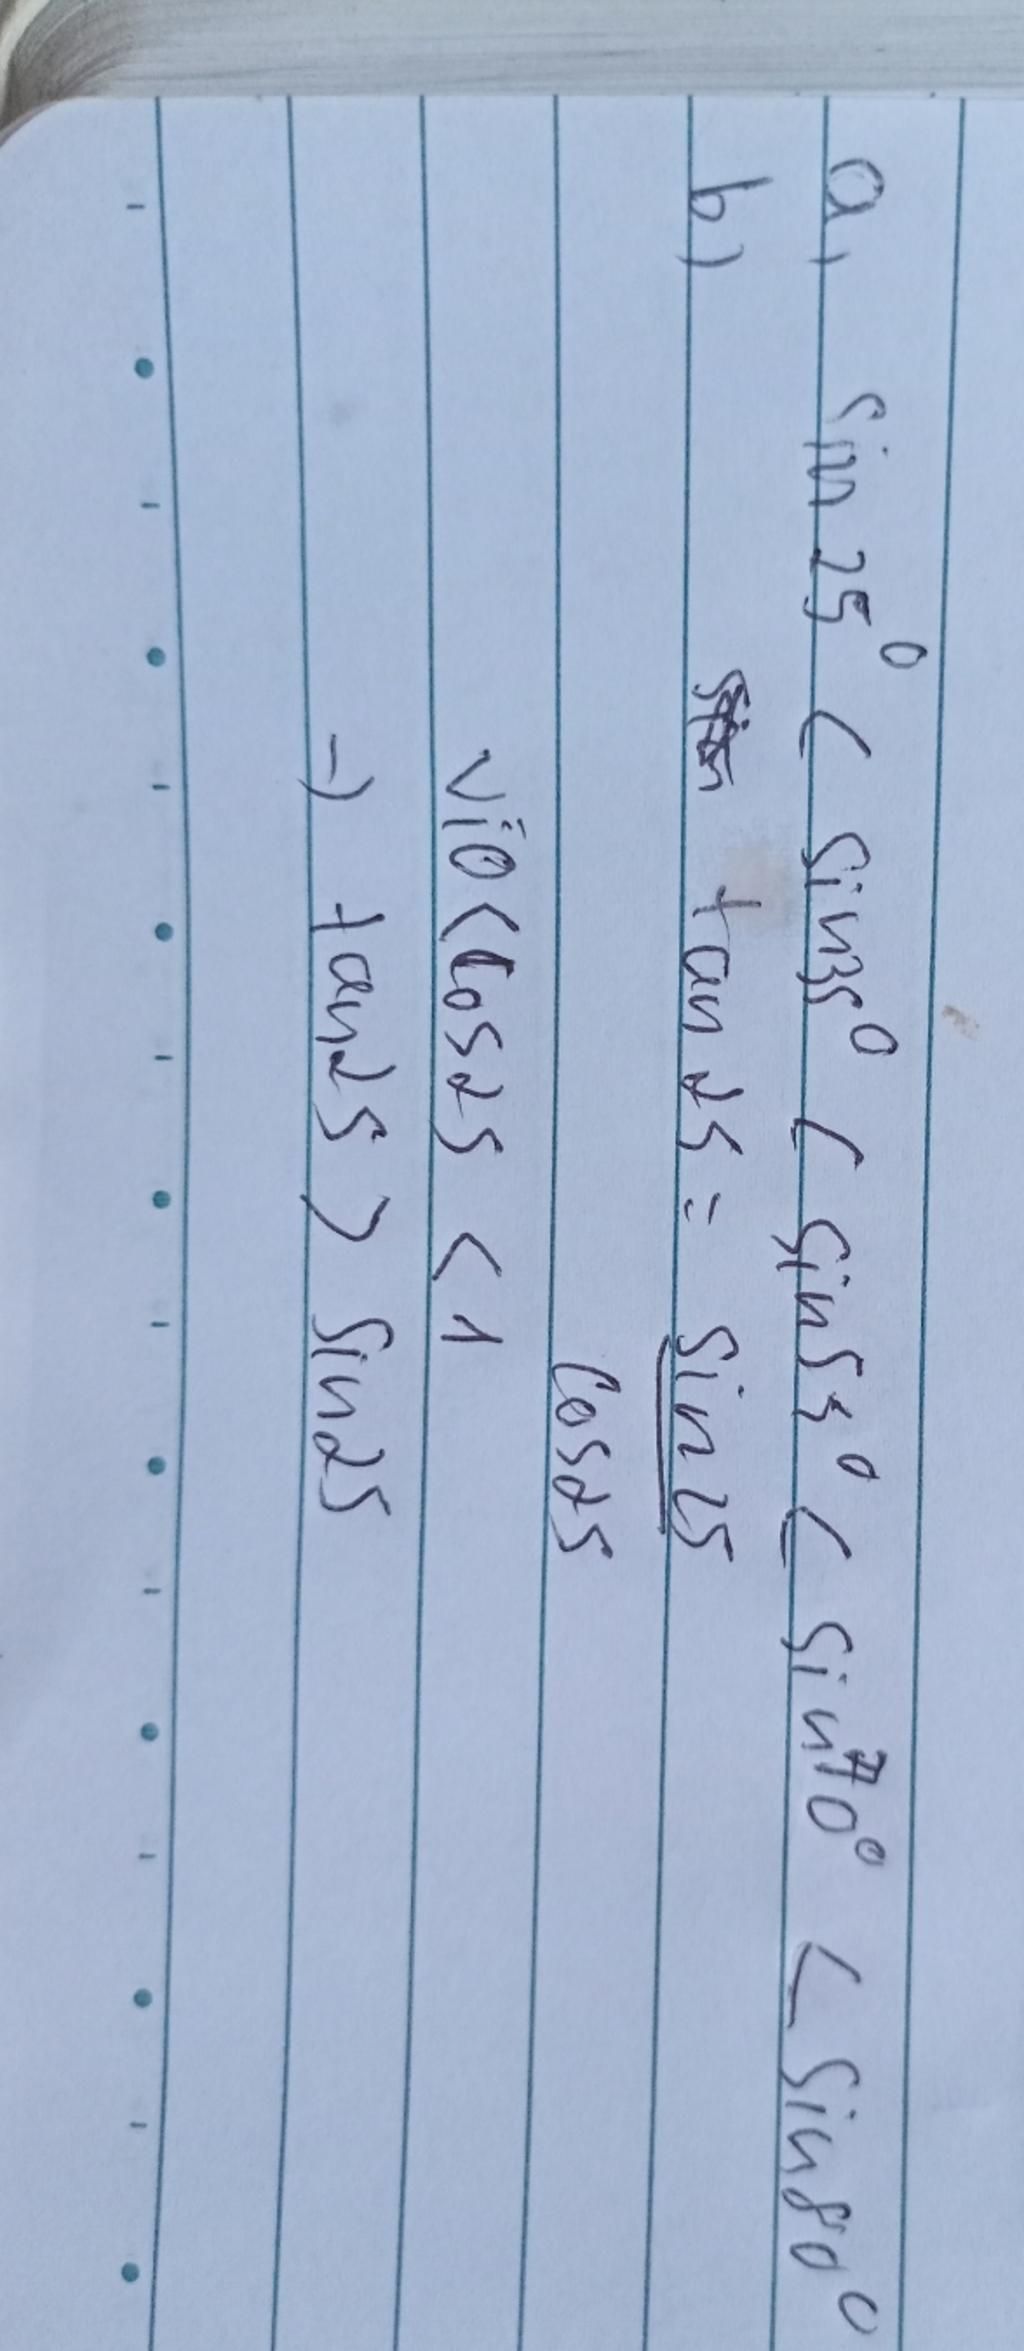 a, sin 25⁰ < sin35⁰ < sin53⁰ < sin70⁰ < sin80⁰
b) tan 25 = sin 25
cos25
vì 0 < cos25 < 1
→ tan25 > sin25